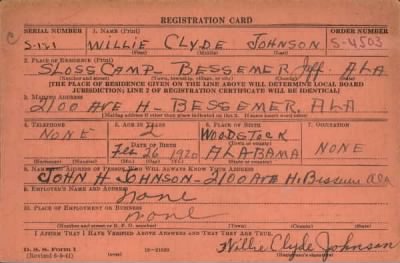 REGISTRATION CARD
SERIAL NUMBER 1. NAME (Print) ORDER NUMBER
S-151 WILLIE CLYDE JOHNSON S-4503
2. PLACE OF RESIDENCE (Print)
SLOSS CAMP BESSEMER Jeff ALA
(Number and street) (Town, township, village, or city) (County) (State)
[THE PLACE OF RESIDENCE GIVEN ON THE LINE ABOVE WILL DETERMINE LOCAL BOARD
JURISDICTION; LINE 2 OF REGISTRATION CERTIFICATE WILL BE IDENTICAL]
3. MAILING ADDRESS
2100 AVE H- BESSEMER, ALA
[Mailing address if other than place indicated on line 2. If same insert word same]
4. TELEPHONE 5. AGE IN YEARS 6. PLACE OF BIRTH 7. OCCUPATION
NONE WOODSTOCK
DATE OF BIRTH (Town or county)
26 1920 ALABAMA NONE
(Exchange) (Number) (Mo.) (Day) (Yr.) (State or country)
8. NAME AND ADDRESS OF PERSON WHO WILL ALWAYS KNOW YOUR ADDRESS
JOHN H JOHNSON - 2100 AVE H. Bessemer ala
9. EMPLOYER'S NAME AND ADDRESS
none
10. PLACE OF EMPLOYMENT OR BUSINESS
none
(Number and street or R. F. D. number) (Town) (County) (State)
I AFFIRM THAT I HAVE VERIFIED ABOVE ANSWERS AND THAT THEY ARE TRUE.
D. S. S. FORM 1 Willie Clyde Johnson
(Revised 6-9-41) (over) (Registrant's signature)